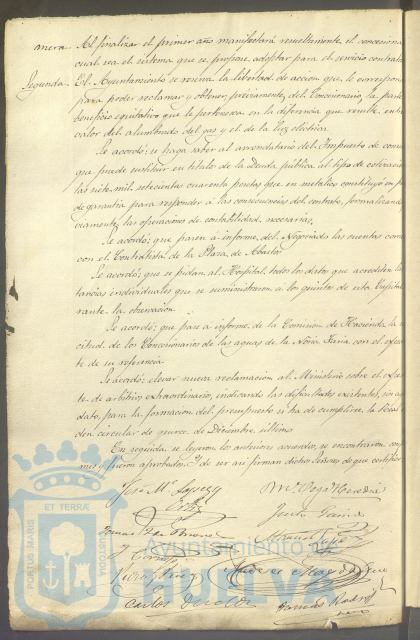 Al finalizar el primer año manifestará resueltamente el concesiona
cual sea el sistema que se propone adoptar para el servicio contrata
Segunda El Ayuntamiento se reserva la libertad de accion que le correspon
para poder reclamar y obtener, previamente, del Concesionario, la parte
beneficio equitativo que le pertenezca en la diferencia que resulte entre
valor del alumbrado del gas y el de la luz electrica
Se acordó: se haga saber al arrendatario del Impuesto de consu
que puede sustituir en titulos de la Deuda pública al tipo de cotizacion
las siete mil setecientas cuarenta pesetas que en metalico constituyó en
de garantia para responder á las consecuencias del contrato, formalizand
viamente las operaciones de contabilidad, necesarias.
Se acordó: que pasen á informe, del Negociado las cuentas
con el Contratista de la Plaza de Abastos
Se acordó: que se pidan al Hospital, todos los datos que acrediten la
tancias individuales que se suministraron á los quintos de esta Capital
rante la observacion
Se acordó: que pase á informe, de la Comision de Hacienda, la
citud de los Concesionarios de las aguas de la con el espe
te de su referencia
Se acordó: elevar nueva reclamacion al Ministerio sobre el espe
te de arbitrios extraordinarios, indicando las dificultades existentes, sin
dato, para la formacion del presupuesto si ha de cumplirse la Real
den circular de quince de Diciembre último
En seguida se leyeron los anteriores acuerdos, se encontraron
mes y fueron aprobados. Y de ser asi firman dichos Señores de que certifico
José Mª
Carlos
Tomás
PORTUS MARIS
ET TERRÆ
CUSTODIA
Ayuntamiento de
HUELVA